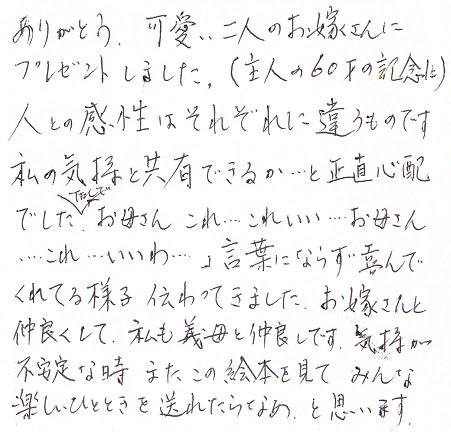 ありがとう. 可愛い、二人のお嫁さんに
プレゼントしました。(主人の60才の記念に)
人との感性はそれぞれに違うものです
私の気持と共有できるか…と正直心配
でした お母さん これ…これいい…お母さん
…これ…いいわ…」言葉にならず喜んで
くれてる様子 伝わってきました. お嫁さんと
仲良くして. 私も義母と仲良しです. 気持が
不安定な時 また この絵本を見て みんな
楽しいひとときを 送れたらなぁ. と思います.